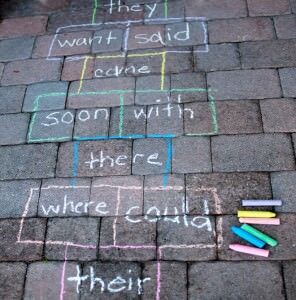 they
want said
came
soon with
there
where could
their